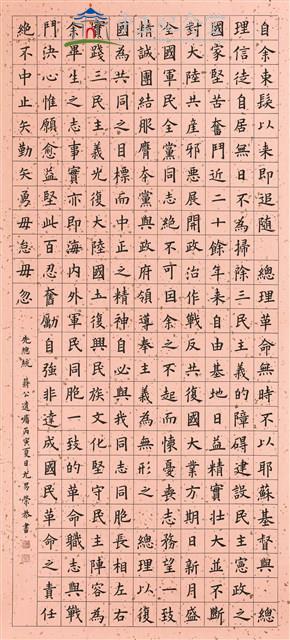 自余束髮以來即追隨 總理革命無時不以耶穌基督與 總
理信徒自居無日不為掃除三民主義的障礙建設民主憲政之
國家堅苦奮鬥近二十餘年來自由基地日益精實壯大並不斷
對大陸共產邪惡展開政治作戰反共復國大業方期日新月盛
全國軍民全黨同志絕不可因余之不起而懷憂喪志務望一致
精誠團結服膺本黨與政府領導奉主義為無形之 總理以復
國為共同之目標而中正之精神自必與我同志同胞長相左右
實踐三民主義光復大陸國土復興民族文化堅守民主陣容為
余畢生之志事實亦即海內外軍民同胞一致的革命職志與戰
鬥決心惟願愈益堅此百忍奮勵自強非達成國民革命之責任
絕不中止矢勤矢勇毋怠毋忽
先總統 蔣公遺囑丙寅夏日 恭書